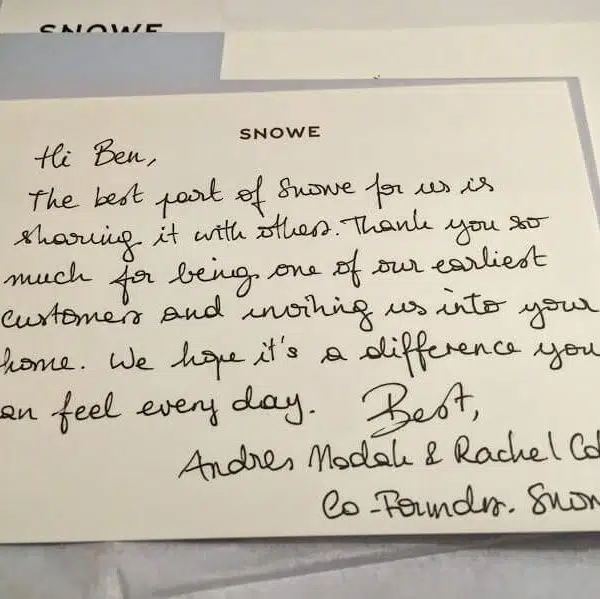 SNOWE
SNOWE
Hi Ben,
The best part of Snowe for us is
sharing it with others. Thank you so
much for being one of our earliest
customers and inviting us into your
home. We hope it's a difference you
an feel every day. Best,
Andres Modak & Rachel Co
Co-Founders. Snow